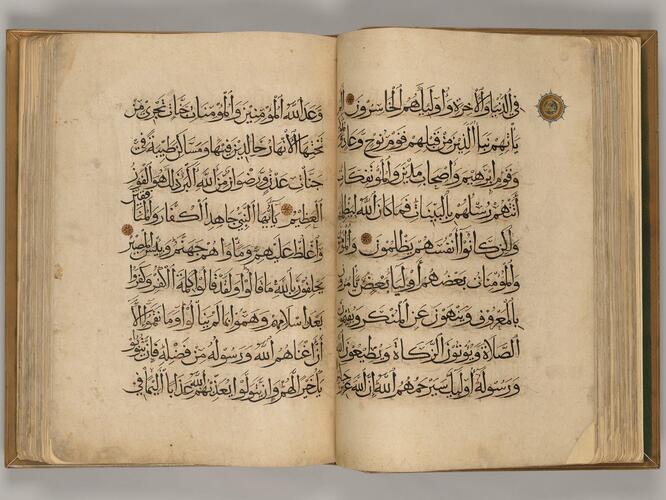 في الدنيا والآخرة وأوليك هم الخاسرون
يأتهم نبأ الذين من قبلهم قوم نوح وعاد
وقوم إبرهيم وأصحاب مدين والمؤتفكات
أتتهم رسلهم بالبينات فما كان الله
ولكن كانوا أنفسهم يظلمون
والمؤمنات بعضهم أوليا بعض يأمرون
بالمعروف وينهون عن المنكر ويقيمون
الصلاة ويؤتون الزكاة ويطيعون
ورسوله أوليك سيرحمهم الله إن الله
وعد الله المؤمنين والمؤمنات جنات تجري من
تحتها الأنهار خالدين فيها ومساكن طيبة في
جنات عدن ورضوان من الله أكبر ذلك هو الفوز
العظيم يأيها النبي جاهد الكفار والمنافقين
واغلظ عليهم ومأواهم جهنم وبيس المصير
يحلفون بالله ما قالوا ولقد قالوا كلمة الكفر وكفروا
بعد إسلامهم وهموا بما لم ينالوا وما نقموا إلا
أن أغناهم الله ورسوله من فضله فإن يتوبوا
يك خيرا لهم وإن يتولوا يعذبهم الله عذابا أليما في